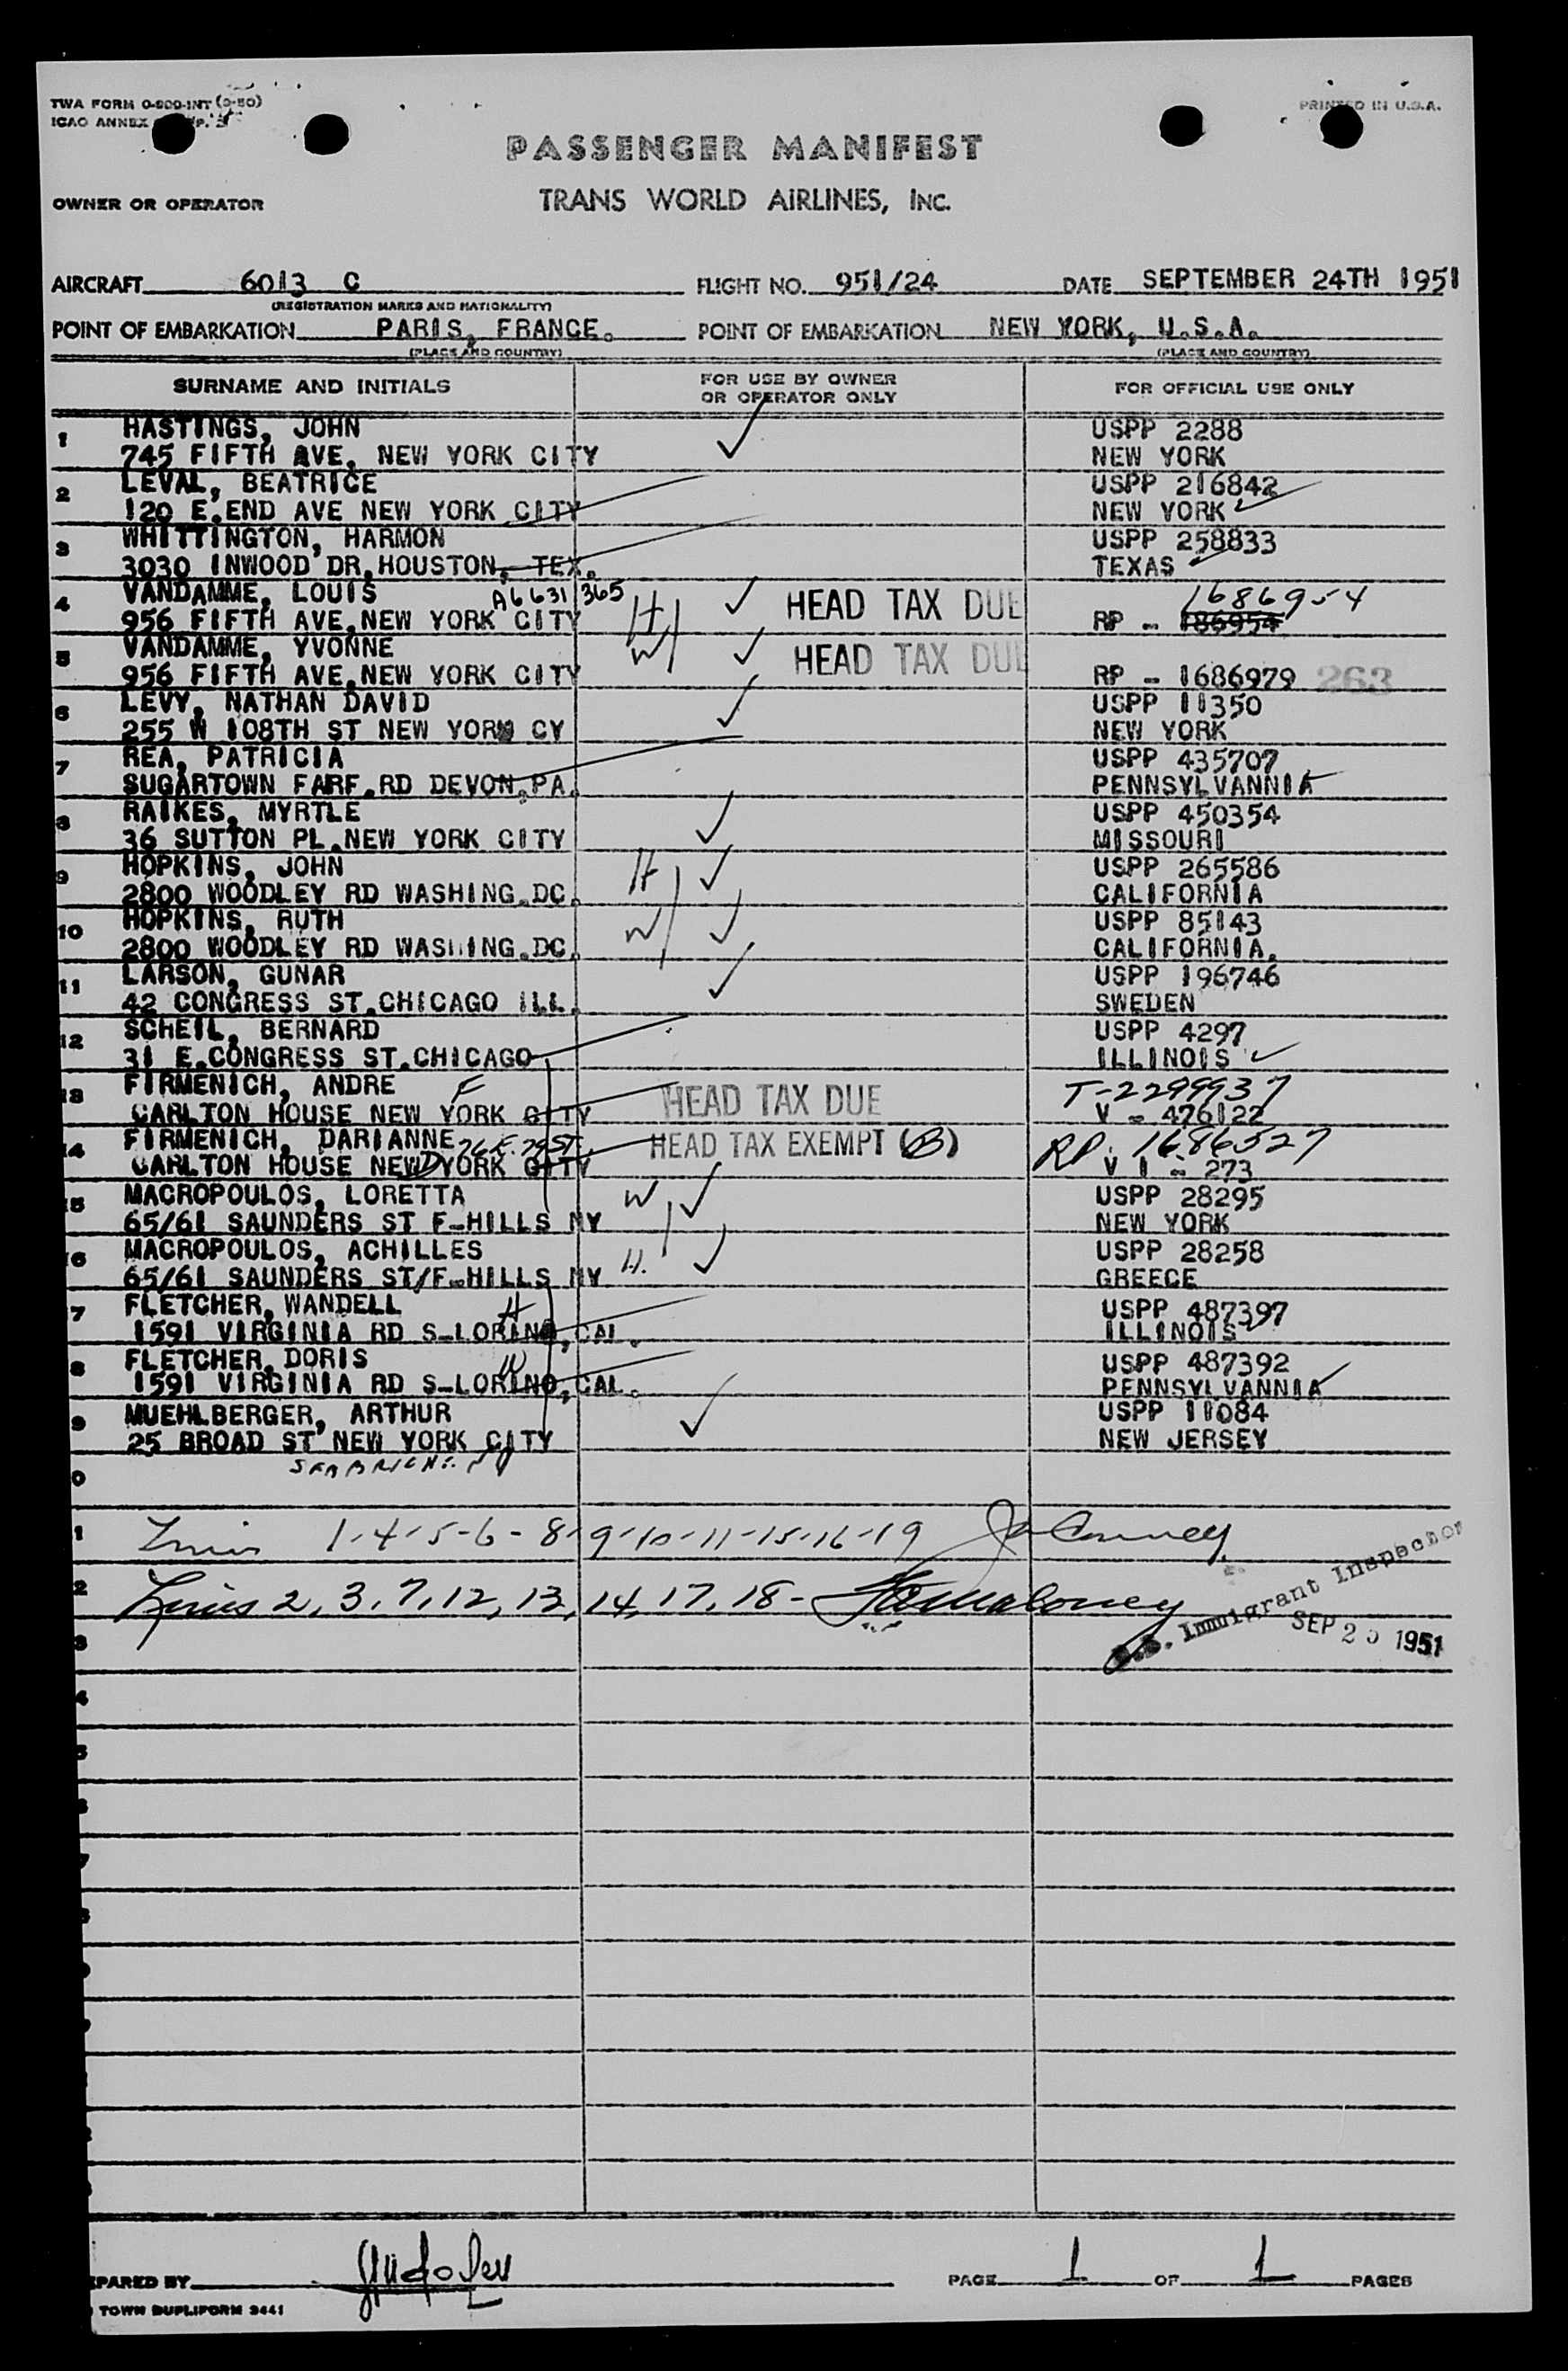 TWA FORM 0-800-INT (9-50)
PRINTED IN U.S.A.
ICAO ANNEX
PASSENGER MANIFEST
OWNER OR OPERATOR
TRANS WORLD AIRLINES, INC.
AIRCRAFT 6013 C FLIGHT NO. 951/24 DATE SEPTEMBER 24TH 1951
(REGISTRATION MARKS AND NATIONALITY)
POINT OF EMBARKATION PARIS, FRANCE. POINT OF EMBARKATION NEW YORK, U.S.A.
(PLACE AND COUNTRY) (PLACE AND COUNTRY)
SURNAME AND INITIALS FOR USE BY OWNER OR OPERATOR ONLY FOR OFFICIAL USE ONLY
1 HASTINGS, JOHN USPP 2288
745 FIFTH AVE, NEW YORK CITY NEW YORK
2 LEVAL, BEATRICE USPP 216842
120 E.END AVE NEW YORK CITY NEW YORK
3 WHITTINGTON, HARMON USPP 258833
3030 INWOOD DR,HOUSTON, TEX. TEXAS
4 VANDAMME, LOUIS A6 631 365 H HEAD TAX DUE 1686954
956 FIFTH AVE,NEW YORK CITY RP - 186954
5 VANDAMME, YVONNE W HEAD TAX DUE
956 FIFTH AVE,NEW YORK CITY RP - 1686979 263
6 LEVY, NATHAN DAVID USPP 11350
255 W 108TH ST NEW YORK CY NEW YORK
7 REA, PATRICIA USPP 435707
SUGARTOWN FARF.RD DEVON,PA. PENNSYLVANNIA
8 RAIKES, MYRTLE USPP 450354
36 SUTTON PL.NEW YORK CITY MISSOURI
9 HOPKINS, JOHN H USPP 265586
2800 WOODLEY RD WASHING.DC. CALIFORNIA
10 HOPKINS, RUTH W USPP 85143
2800 WOODLEY RD WASHING.DC. CALIFORNIA.
11 LARSON, GUNAR USPP 196746
42 CONGRESS ST.CHICAGO ILL. SWEDEN
12 SCHEIL, BERNARD USPP 4297
31 E.CONGRESS ST.CHICAGO ILLINOIS
13 FIRMENICH, ANDRE F HEAD TAX DUE T-2299937
CARLTON HOUSE NEW YORK CITY V - 476122
14 FIRMENICH, DARIANNE 76 E. 79 ST. HEAD TAX EXEMPT (B) RP. 1686527
CARLTON HOUSE NEW YORK CITY V I - 273
15 MACROPOULOS, LORETTA W USPP 28295
65/61 SAUNDERS ST F-HILLS NY NEW YORK
16 MACROPOULOS, ACHILLES H. USPP 28258
65/61 SAUNDERS ST/F-HILLS NY GREECE
7 FLETCHER, WANDELL H USPP 487397
1591 VIRGINIA RD S-LORINO,CAL. ILLINOIS
8 FLETCHER, DORIS W USPP 487392
1591 VIRGINIA RD S-LORINO,CAL. PENNSYLVANNIA
9 MUEHLBERGER, ARTHUR USPP 11084
25 BROAD ST NEW YORK CITY NEW JERSEY
0
1 1-4-5-6-8-9-10-11-15-16-19
2 Lines 2, 3, 7, 12, 13, 14, 17, 18 -
U.S. Immigrant Inspector
3 SEP 25 1951
4
PREPARED BY PAGE 1 OF 1 PAGES
TOWN DUPLIFORM 3441